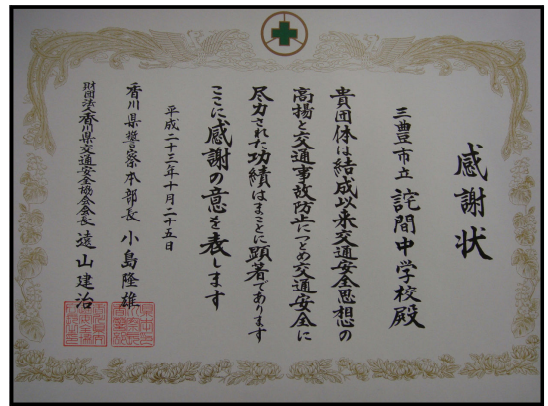 感謝状
三豊市立 詫間中学校殿
貴団体は結成以来交通安全思想の
高揚と交通事故防止につとめ交通安全に
尽力された功績はまことに顕著であります
ここに感謝の意を表します
平成二十三年十月二十五日
香川県警察本部長 小島隆雄
財団法人香川県交通安全協会会長 遠山建治